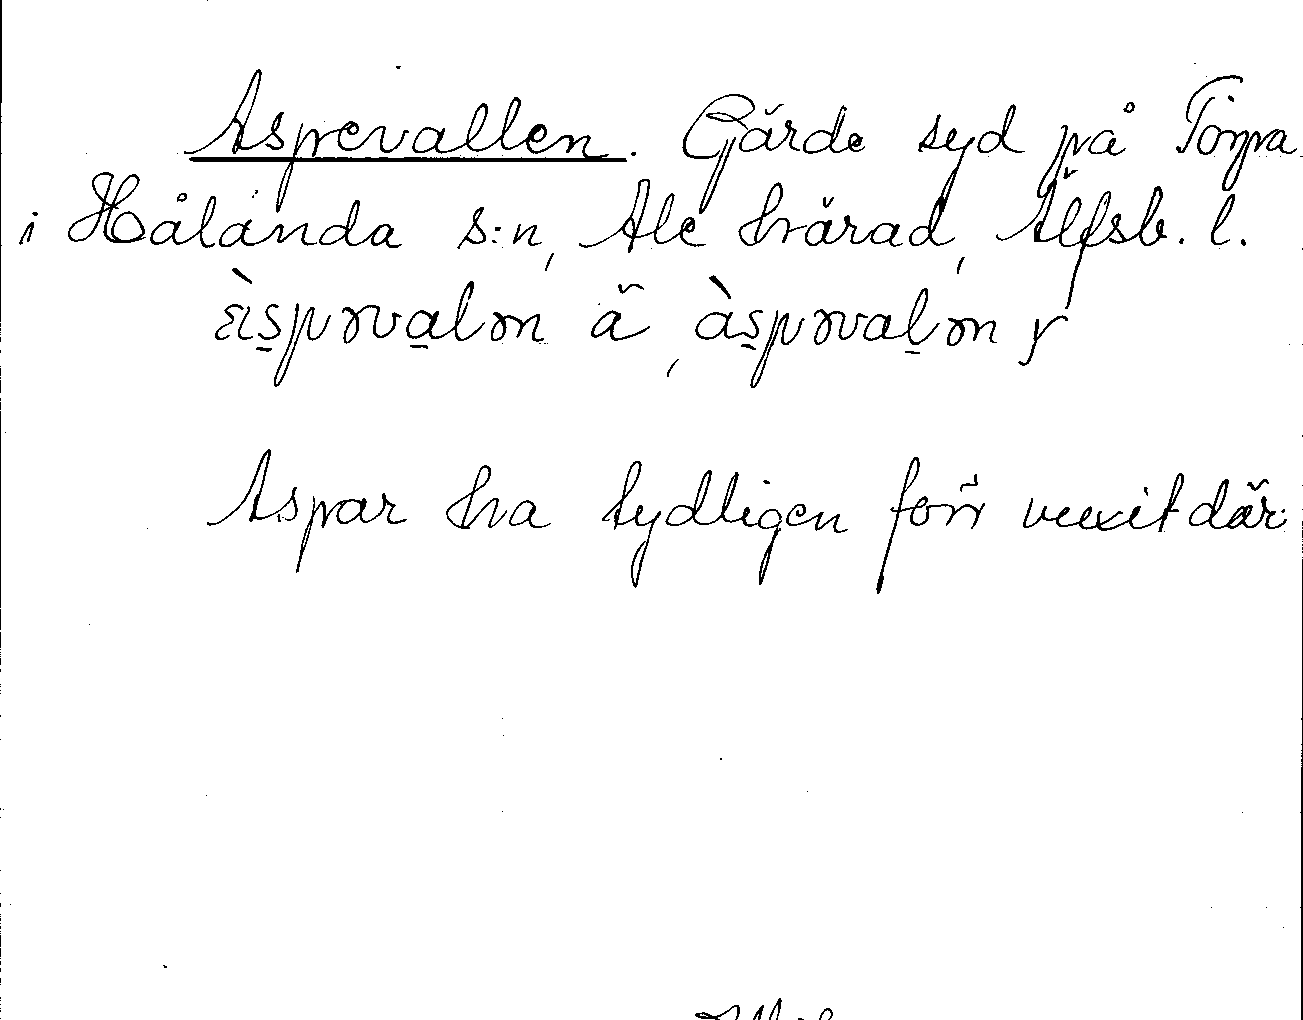 Aspevallen. Gärde syd på Torpa
i Hålanda s:n, Ale härad, Älfsb. l.
àspəvalən ä, àspəvalən y
Aspar ha tydligen förr vuxit där.